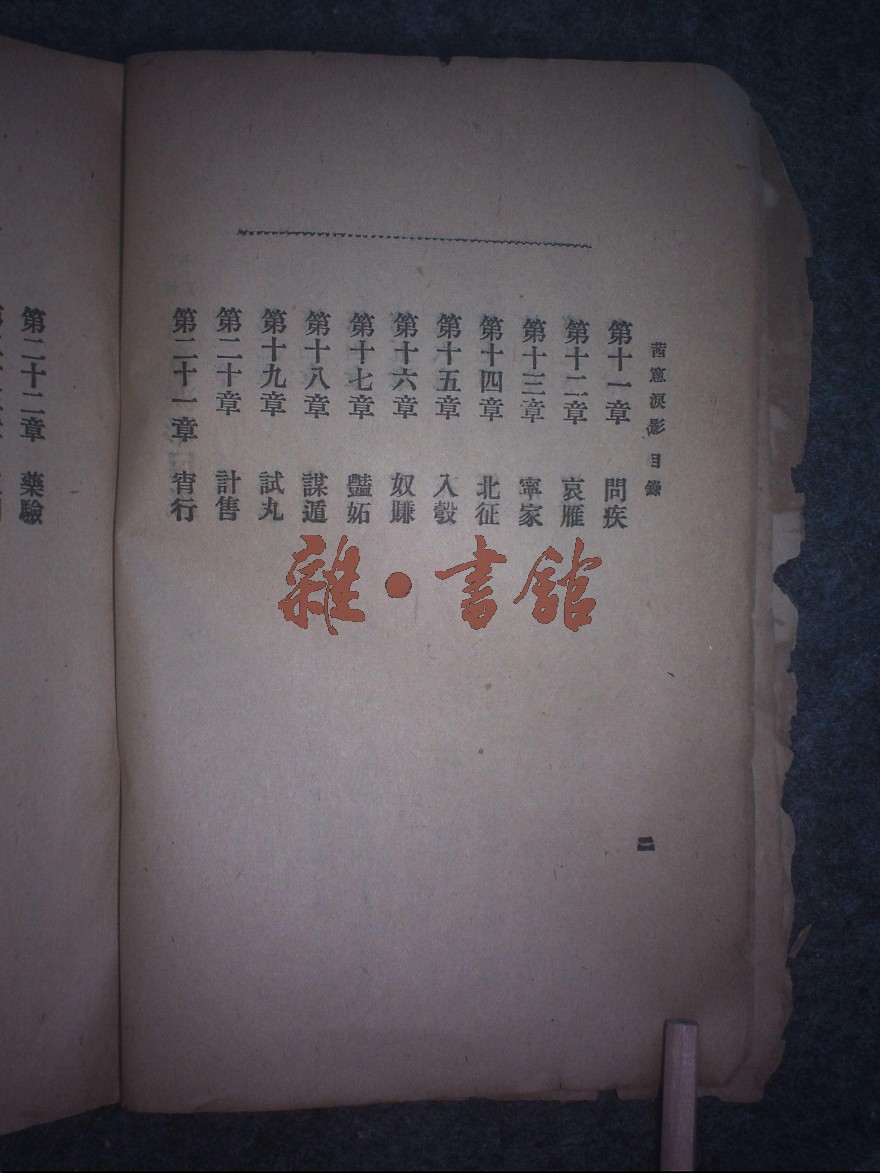 茜窻淚影 目錄
第十一章 問疾
第十二章 哀雁
第十三章 寧家
第十四章 北征
第十五章 入彀
第十六章 奴賺
第十七章 豔妬
第十八章 謀遁
第十九章 試丸
第二十章 計售
第二十一章 宵行
二
第二十二章 藥驗
雜·書館